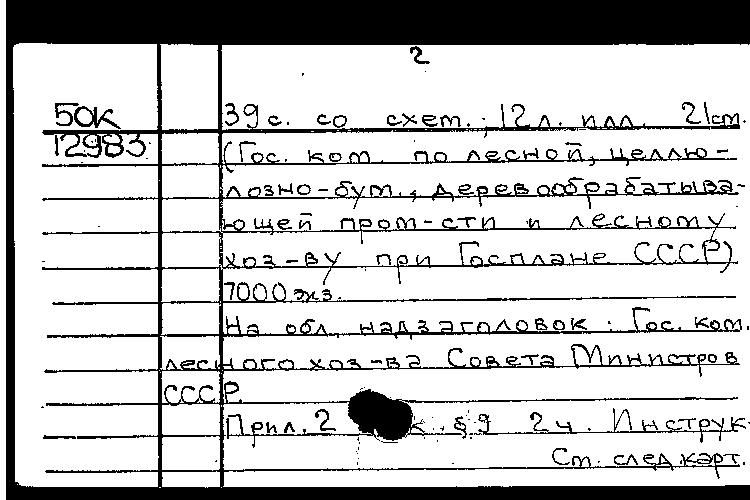 2
50К 39 с. со схем.; 12 л. илл. 21см.
12983 (Гос. ком. по лесной, целлю-
лозно-бум., деревообрабатыва-
ющей пром-сти и лесному
хоз-ву при Госплане СССР)
7000 экз.
На обл. надзаголовок: Гос. ком.
лесного хоз-ва Совета Министров
СССР.
Прил. 2 к § 9 2 ч. Инструк-
См. след карт.